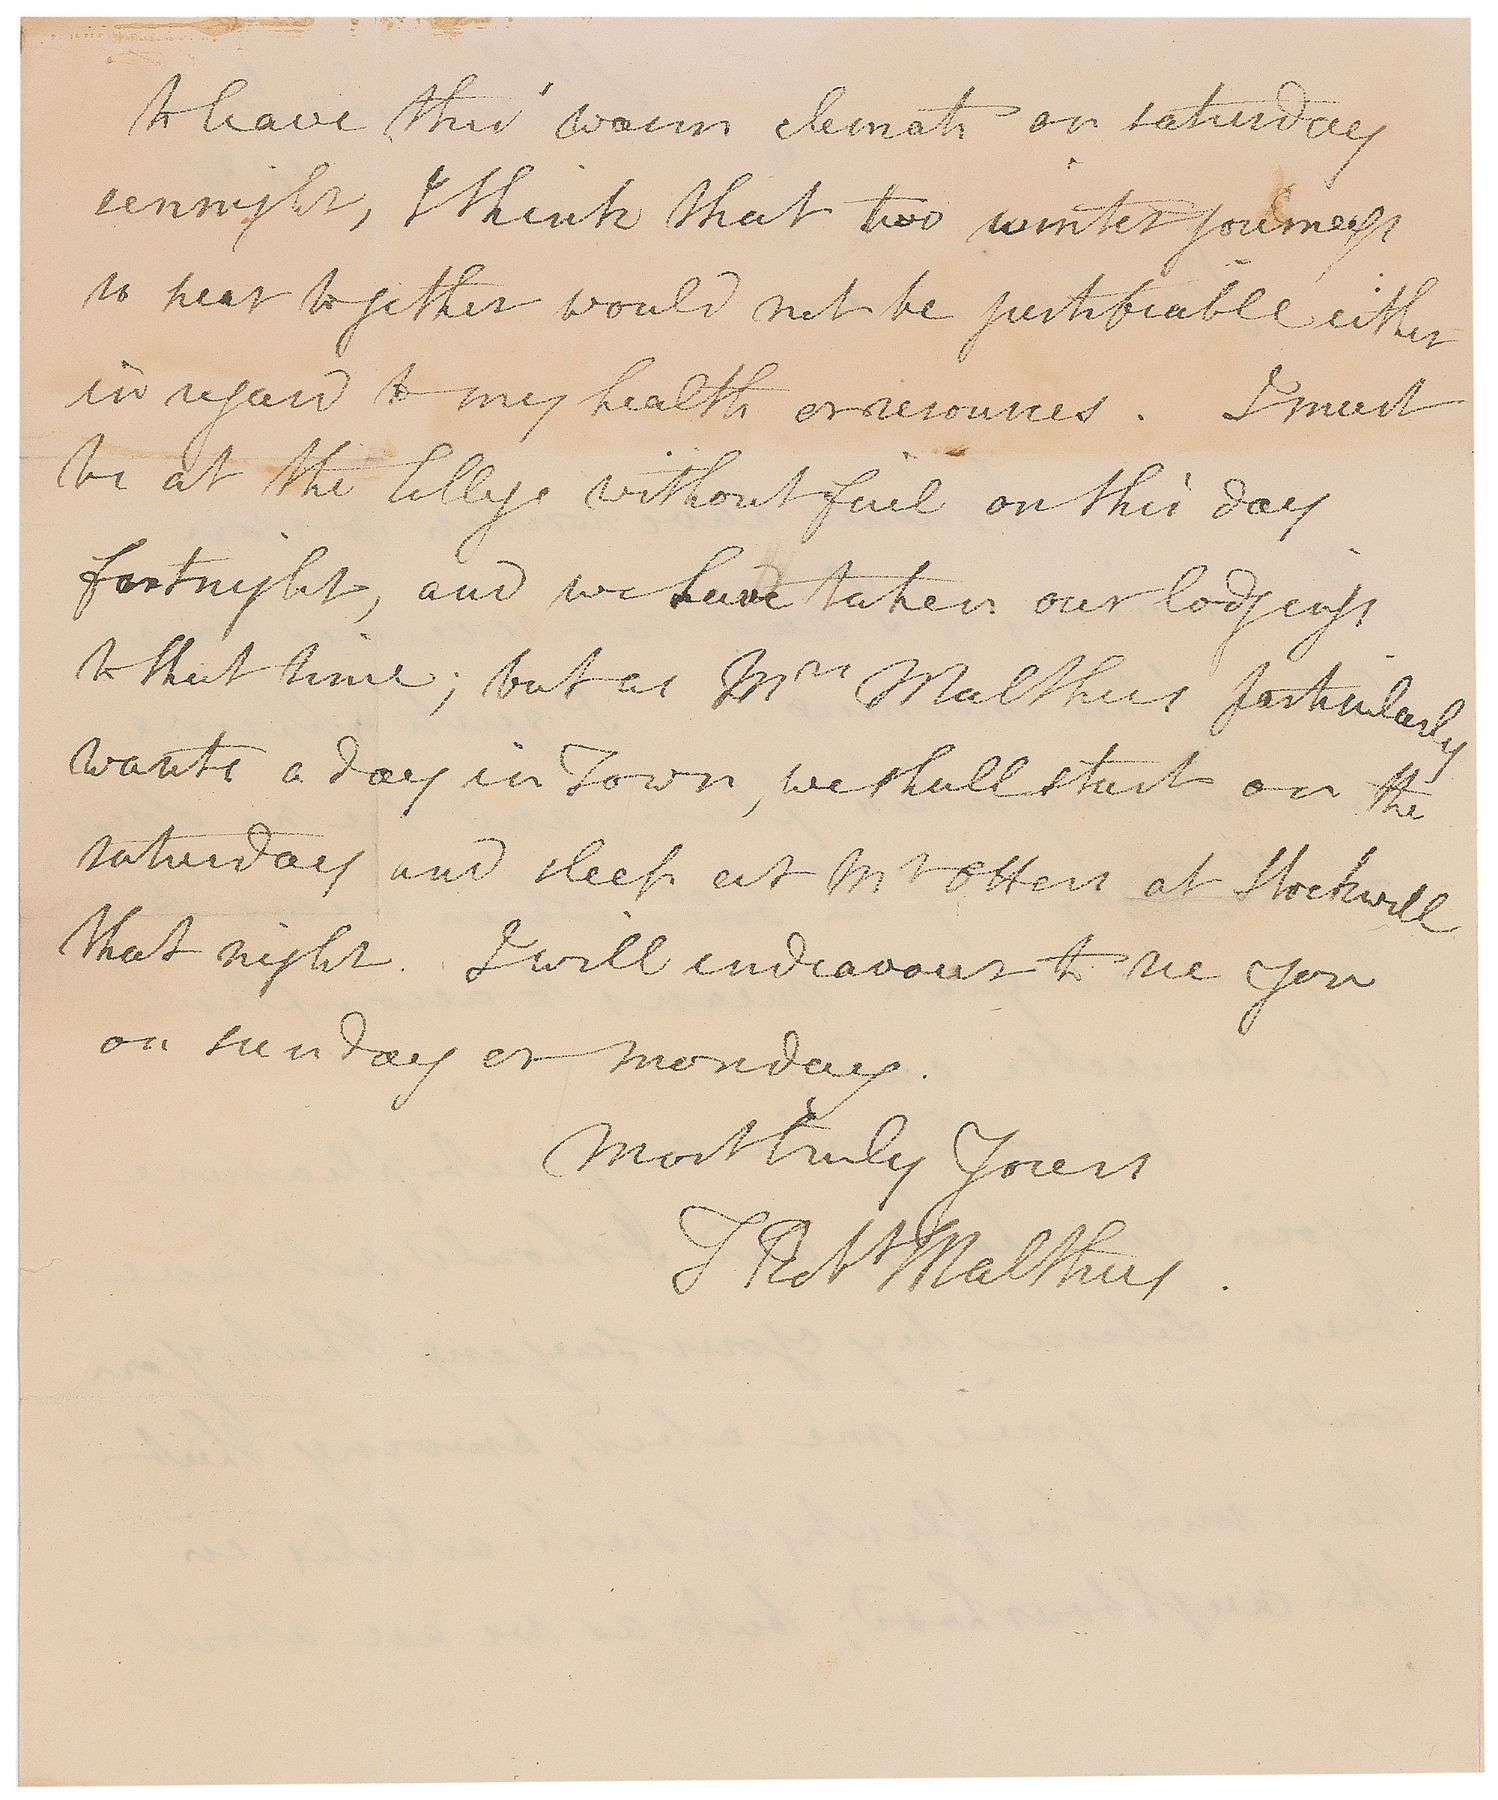 to leave this warm climate on saturday
sennight, I think that two winter journeys
so near together would not be justifiable either
in regard to my health or resources. I must
be at the College without fail on this day
fortnight, and we have taken our lodgings
to that time; but as Mrs Malthus particularly
wants a day in Town, we shall start on the
saturday and sleep at Mr Otters at Stockwell
that night. I will endeavour to see you
on sunday or monday.
Most truly Yours
T Robt Malthus.